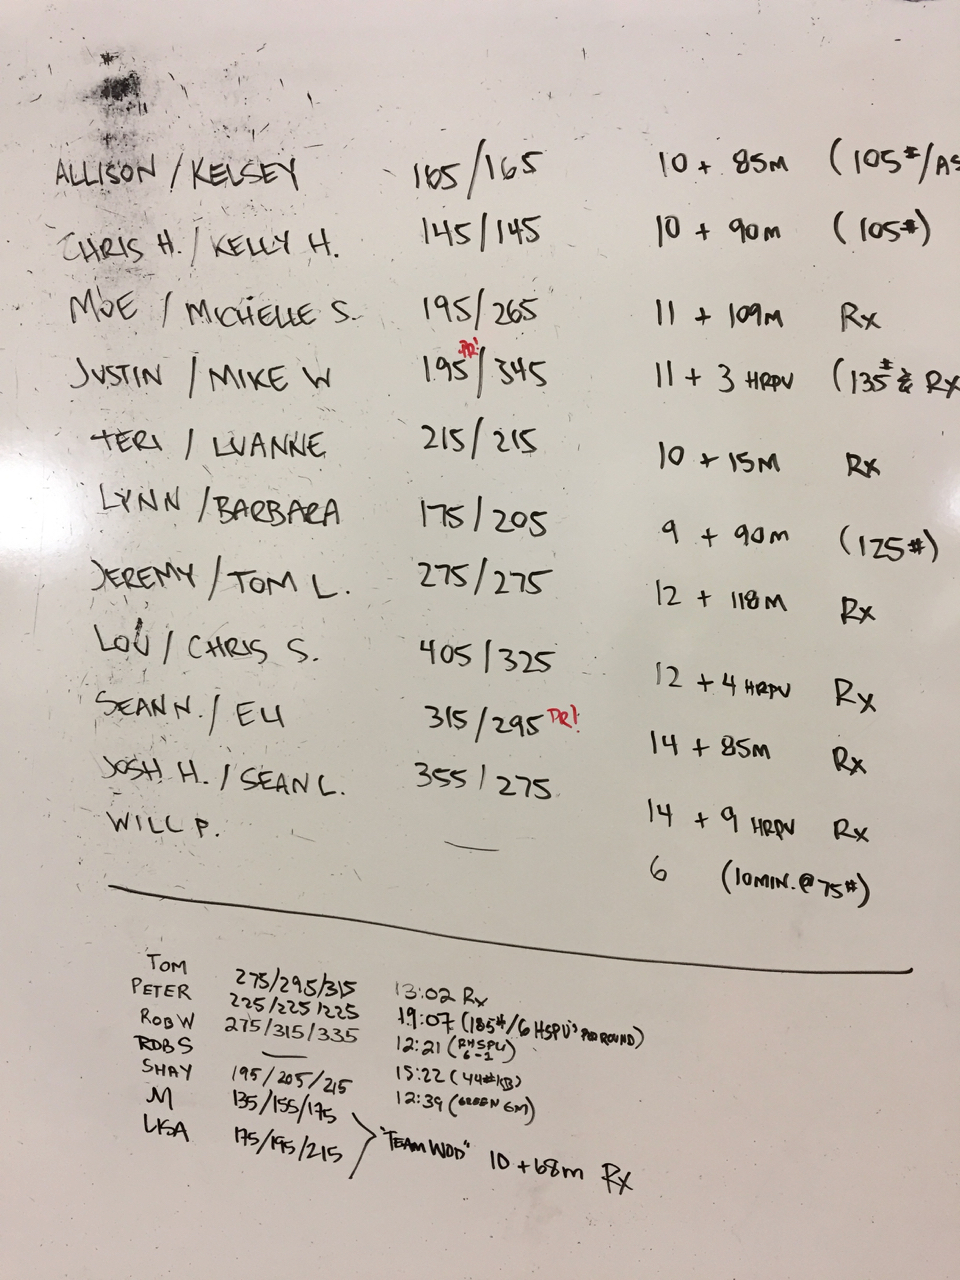 ALLISON / KELSEY 165/165 10 + 85M (105#/AS
CHRIS H. / KELLY H. 145/145 10 + 90M (105#)
MOE / MICHELLE S. 195/265 11 + 109M Rx
JUSTIN / MIKE W 195 PR! / 345 11 + 3 HRPU (135# & Rx
TERI / LUANNE 215/215 10 + 15M Rx
LYNN / BARBARA 175/205 9 + 90M (125#)
JEREMY / TOM L. 275/275 12 + 118M Rx
LOU / CHRIS S. 405/325 12 + 4 HRPU Rx
SEAN N. / ELI 315/295 PR! 14 + 85M Rx
JOSH H. / SEAN L. 355/275 14 + 9 HRPU Rx
WILL P. — 6 (10MIN. @ 75#)
TOM 275/295/315 13:02 Rx
PETER 225/225/225 19:07 (185#/6 HSPU's PER ROUND)
ROB W 275/315/335 12:21 (RHSPU 6-1)
ROB S — 15:22 (44# KB)
SHAY 195/205/215 12:39 (GREEN 6M)
M 135/155/175
LISA 175/195/215 "TEAM WOD" 10 + 68M Rx